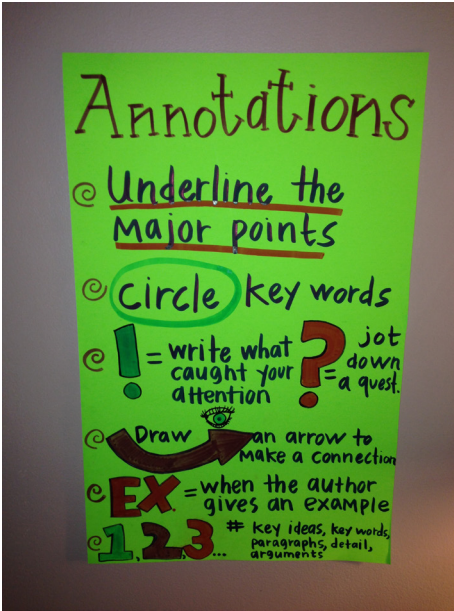 Annotations
Underline the
major points
circle key words
! = write what
caught your
attention
? = jot
down
a quest.
Draw an arrow to
make a connection
EX. = when the author
gives an example
1, 2, 3... # key ideas, key words,
paragraphs, detail,
arguments